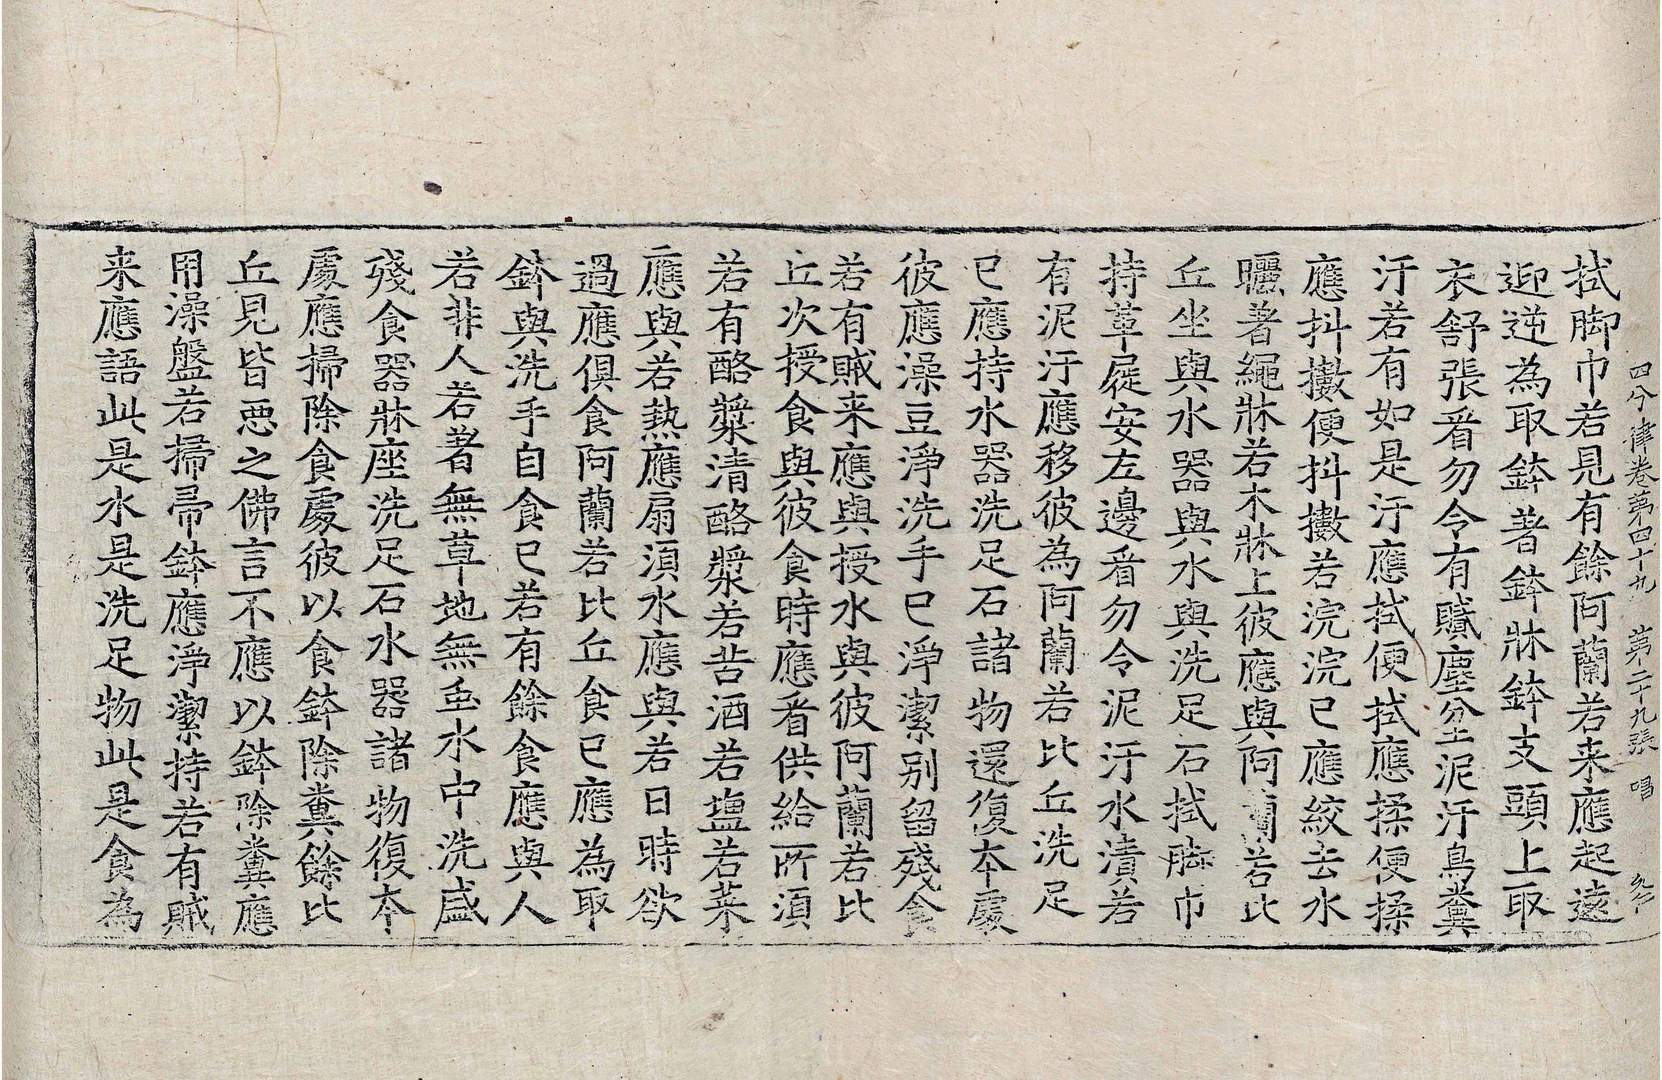 四分律卷第四十九　第二十九張　唱
拭脚巾若見有餘阿蘭若来應起遠
迎逆為取鉢著鉢牀鉢支頭上取
衣舒張看勿令有膩塵坌泥汙鳥糞
汙若有如是汙應拭便拭應揉便揉
應抖擻便抖擻若浣浣已應絞去水
曬著繩牀若木牀上彼應與阿蘭若比
丘坐與水器與水與洗足石拭脚巾
持革屣安左邊看勿令泥汙水漬若
有泥汙應移彼為阿蘭若比丘洗足
已應持水器洗足石諸物還復本處
彼應澡豆淨洗手已淨潔別留殘食
若有賊来應與授水與彼阿蘭若比
丘次授食與彼食時應看供給所須
若有酪漿清酪漿若苦酒若塩若菜
應與若熱應扇須水應與若日時欲
過應俱食阿蘭若比丘食已應為取
鉢與洗手自食已若有餘食應與人
若非人若著無草地無虫水中洗盛
殘食器牀座洗足石水器諸物復本
處應掃除食處彼以食鉢除糞餘比
丘見皆惡之佛言不應以鉢除糞應
用澡盤若掃帚鉢應淨潔持若有賊
来應語此是水是洗足物此是食為